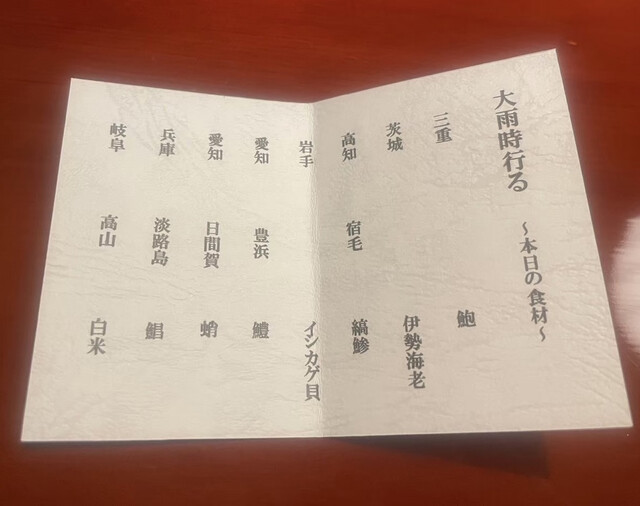 大雨時行る 〜本日の食材〜
三重 鮑
茨城 伊勢海老
高知 宿毛 縞鯵
岩手 イシカゲ貝
愛知 豊浜 鱧
愛知 日間賀 蛸
兵庫 淡路島 鯧
岐阜 高山 白米